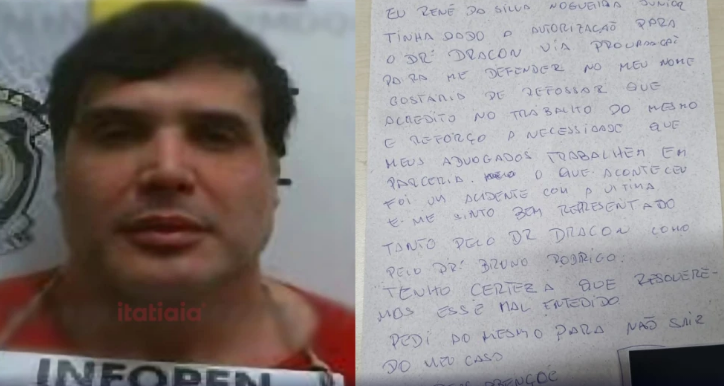 itatiaia
INFOPEN
EU RENÉ DA SILVA NOGUEIRA JUNIOR
TINHA DADO A AUTORIZAÇÃO PARA
O DR DRACON VIA PROCURAÇÃO
PARA ME DEFENDER NO MEU NOME
GOSTARIA DE REFOSSAR QUE
ACREDITO NO TRABALHO DO MESMO
E REFORÇO A NECESSIDADE QUE
MEUS ADVOGADOS TRABALHEM EM
PARCERIA. O QUE ACONTECEU
FOI UM ACIDENTE COM A VITIMA
E ME SINTO BEM REPRESENTADO
TANTO PELO DR DRACON COMO
PELO DR. BRUNO RODRIGO.
TENHO CERTEZA QUE RESOLVERE-
MOS ESSE MAL ENTEDIDO
PEDI AO MESMO PARA NÃO SAIR
DO MEU CASO